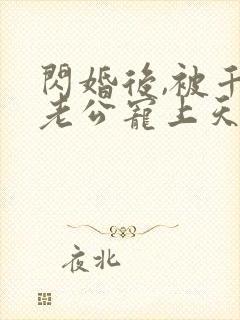 閃婚後,被千
老公寵上天
夜北